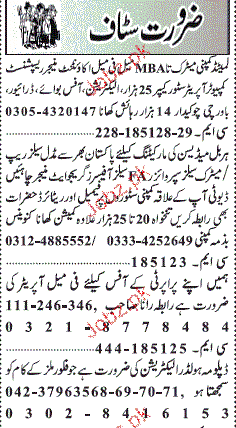 ضرورت سٹاف
لمیٹڈ کمپنی میٹرک تا MBA فی میل اکاؤنٹنٹ منیجر ریسپشنسٹ
کمپیوٹر آپریٹر سٹور کیپر 25 ہزار، الیکٹریشن، آفس بوائے، ڈرائیور،
باورچی چوکیدار 14 ہزار رہائش کھانا 0305-4320147
سی ایم۔ 29-185128-228
ہربل میڈیسن کی مارکیٹنگ کیلئے پاکستان بھر سے میڈیکل سیلز ریپ
FA سیلز آفیسرز گریجوایٹ منیجر چاہئیں
ڈیوٹی آپ کے علاقہ کمپنی سٹورز فی میل اور ریٹائرڈ حضرات
بھی رابطہ کریں تنخواہ 20 تا 25 ہزار علاوہ کمیشن کھانا کنوینس
بذمہ کمپنی 0333-4252649 / 0312-4885552
سی ایم۔ 185123
ہمیں اپنے پراپرٹی کے آفس کیلئے فی میل آپریٹر کی
ضرورت ہے رابطہ رانا صاحب 111-246-346,
0321-8778484
سی ایم۔ 185125-444
ڈپلومہ ہولڈر الیکٹریشن کی ضرورت ہے جو فلور ملز کے کام کو
سمجھتا ہو 042-37963568-69-70-71,
0302-8416153